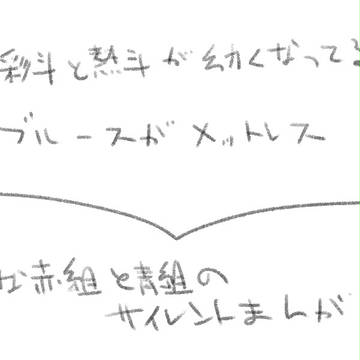 彩斗と熱斗が幼くなってる
ブルースがメットレス
な赤組と青組の
サイレントまんが